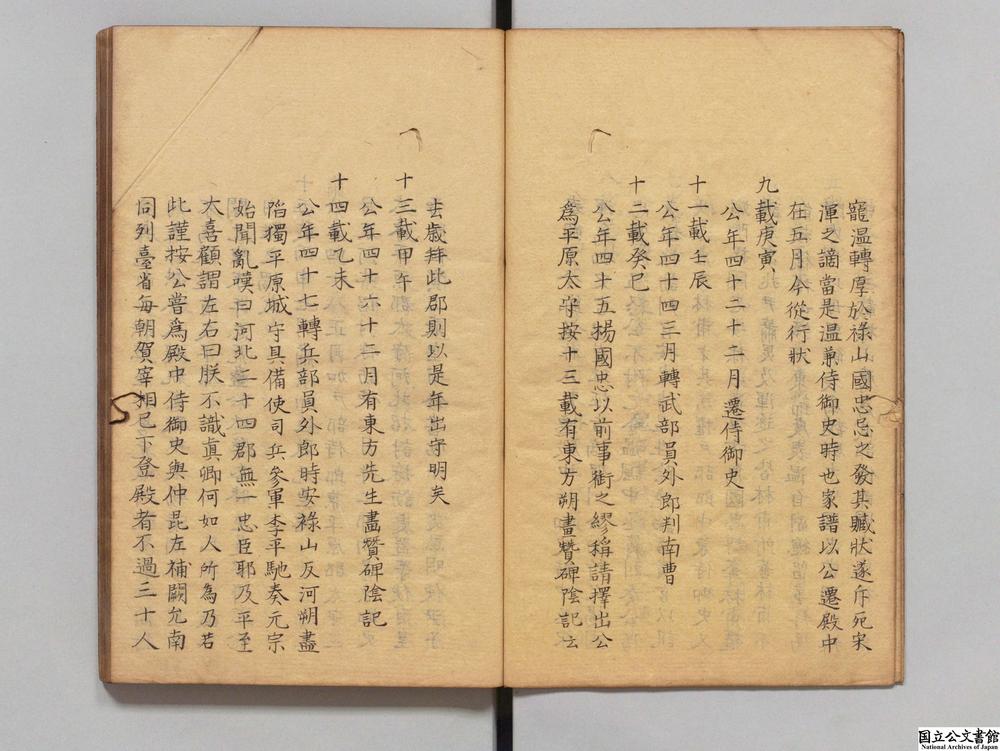 寵温轉厚於祿山國忠忌之發其贓狀遂斥死宋
渾之謫當是温兼侍御史時也家譜以公遷殿中
在五月今從行狀
九載庚寅
公年四十二十二月遷侍御史
十一載壬辰
公年四十四三月轉武部員外郎判南曹
十二載癸巳
公年四十五楊國忠以前事銜之繆稱請擇出公
爲平原太守按十三載有東方朔畫贊碑陰記云
去歲拜此郡則以是年出守明矣
十三載甲午
公年四十六十二月有東方先生畫贊碑陰記
十四載乙未
公年四十七轉兵部員外郎時安祿山反河朔盡
陷獨平原城守具備使司兵參軍李平馳奏元宗
始聞亂嘆曰河北二十四郡無一忠臣耶及平至
大喜顧謂左右曰朕不識真卿何如人所為乃若
此謹按公嘗爲殿中侍御史與仲昆左補闕允南
同列臺省每朝賀宰相已下登殿者不過三十人
国立公文書館
National Archives of Japan